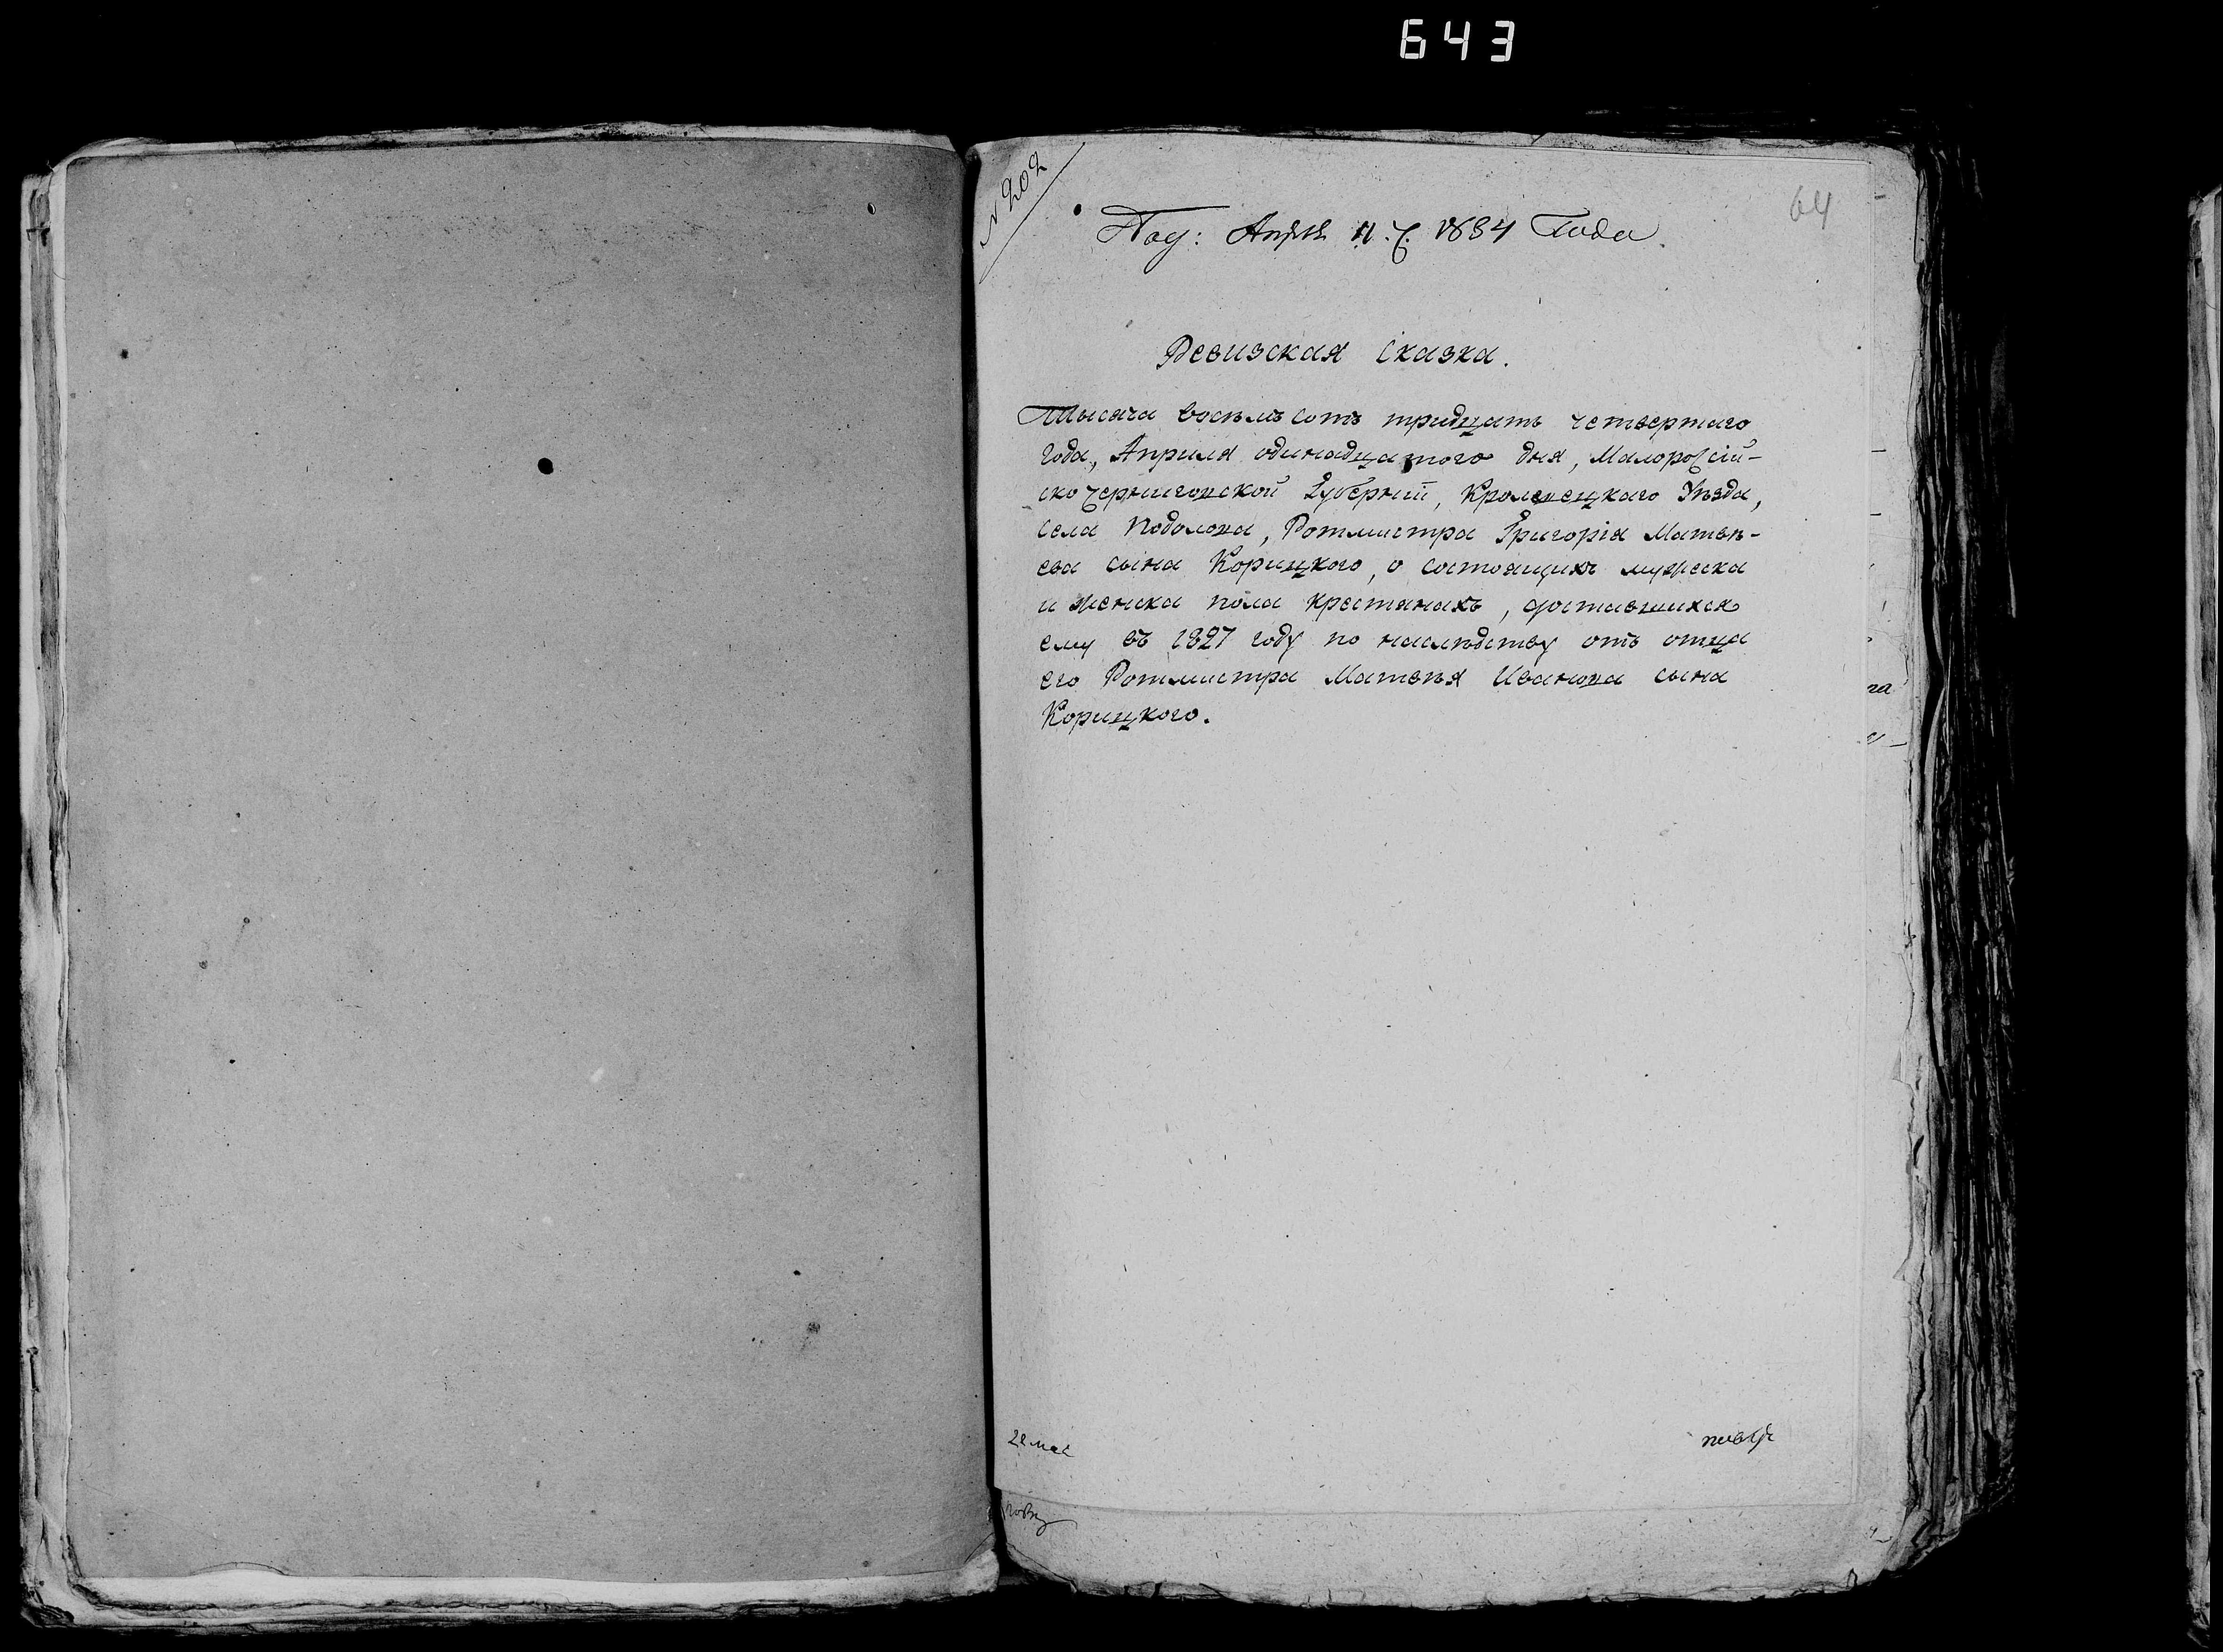 643
N 202
64
Под: Апреля 11. ч. 1834 Года.
Ревизская сказка.
Тысяча восемь сотъ тридцать четвертаго
года, Апреля одинадцатого дня, Малоросій-
ско Черниговской Губерніи, Кролевецкаго Уѣзда,
села Подолова, Ротмистра Григорія Матвѣ-
ева сына Корицкого, о состоящихъ мужеска
и женска пола крестянахъ, доставшихся
ему въ 1827 году по наслѣдству отъ отца
его Ротмистра Матвѣя Иванова сына
Корицкого.
га